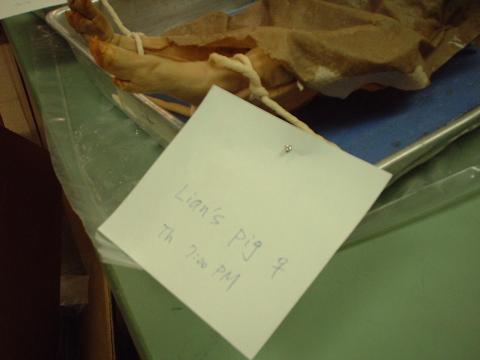 Lian's pig ♀
Th 7:00 PM